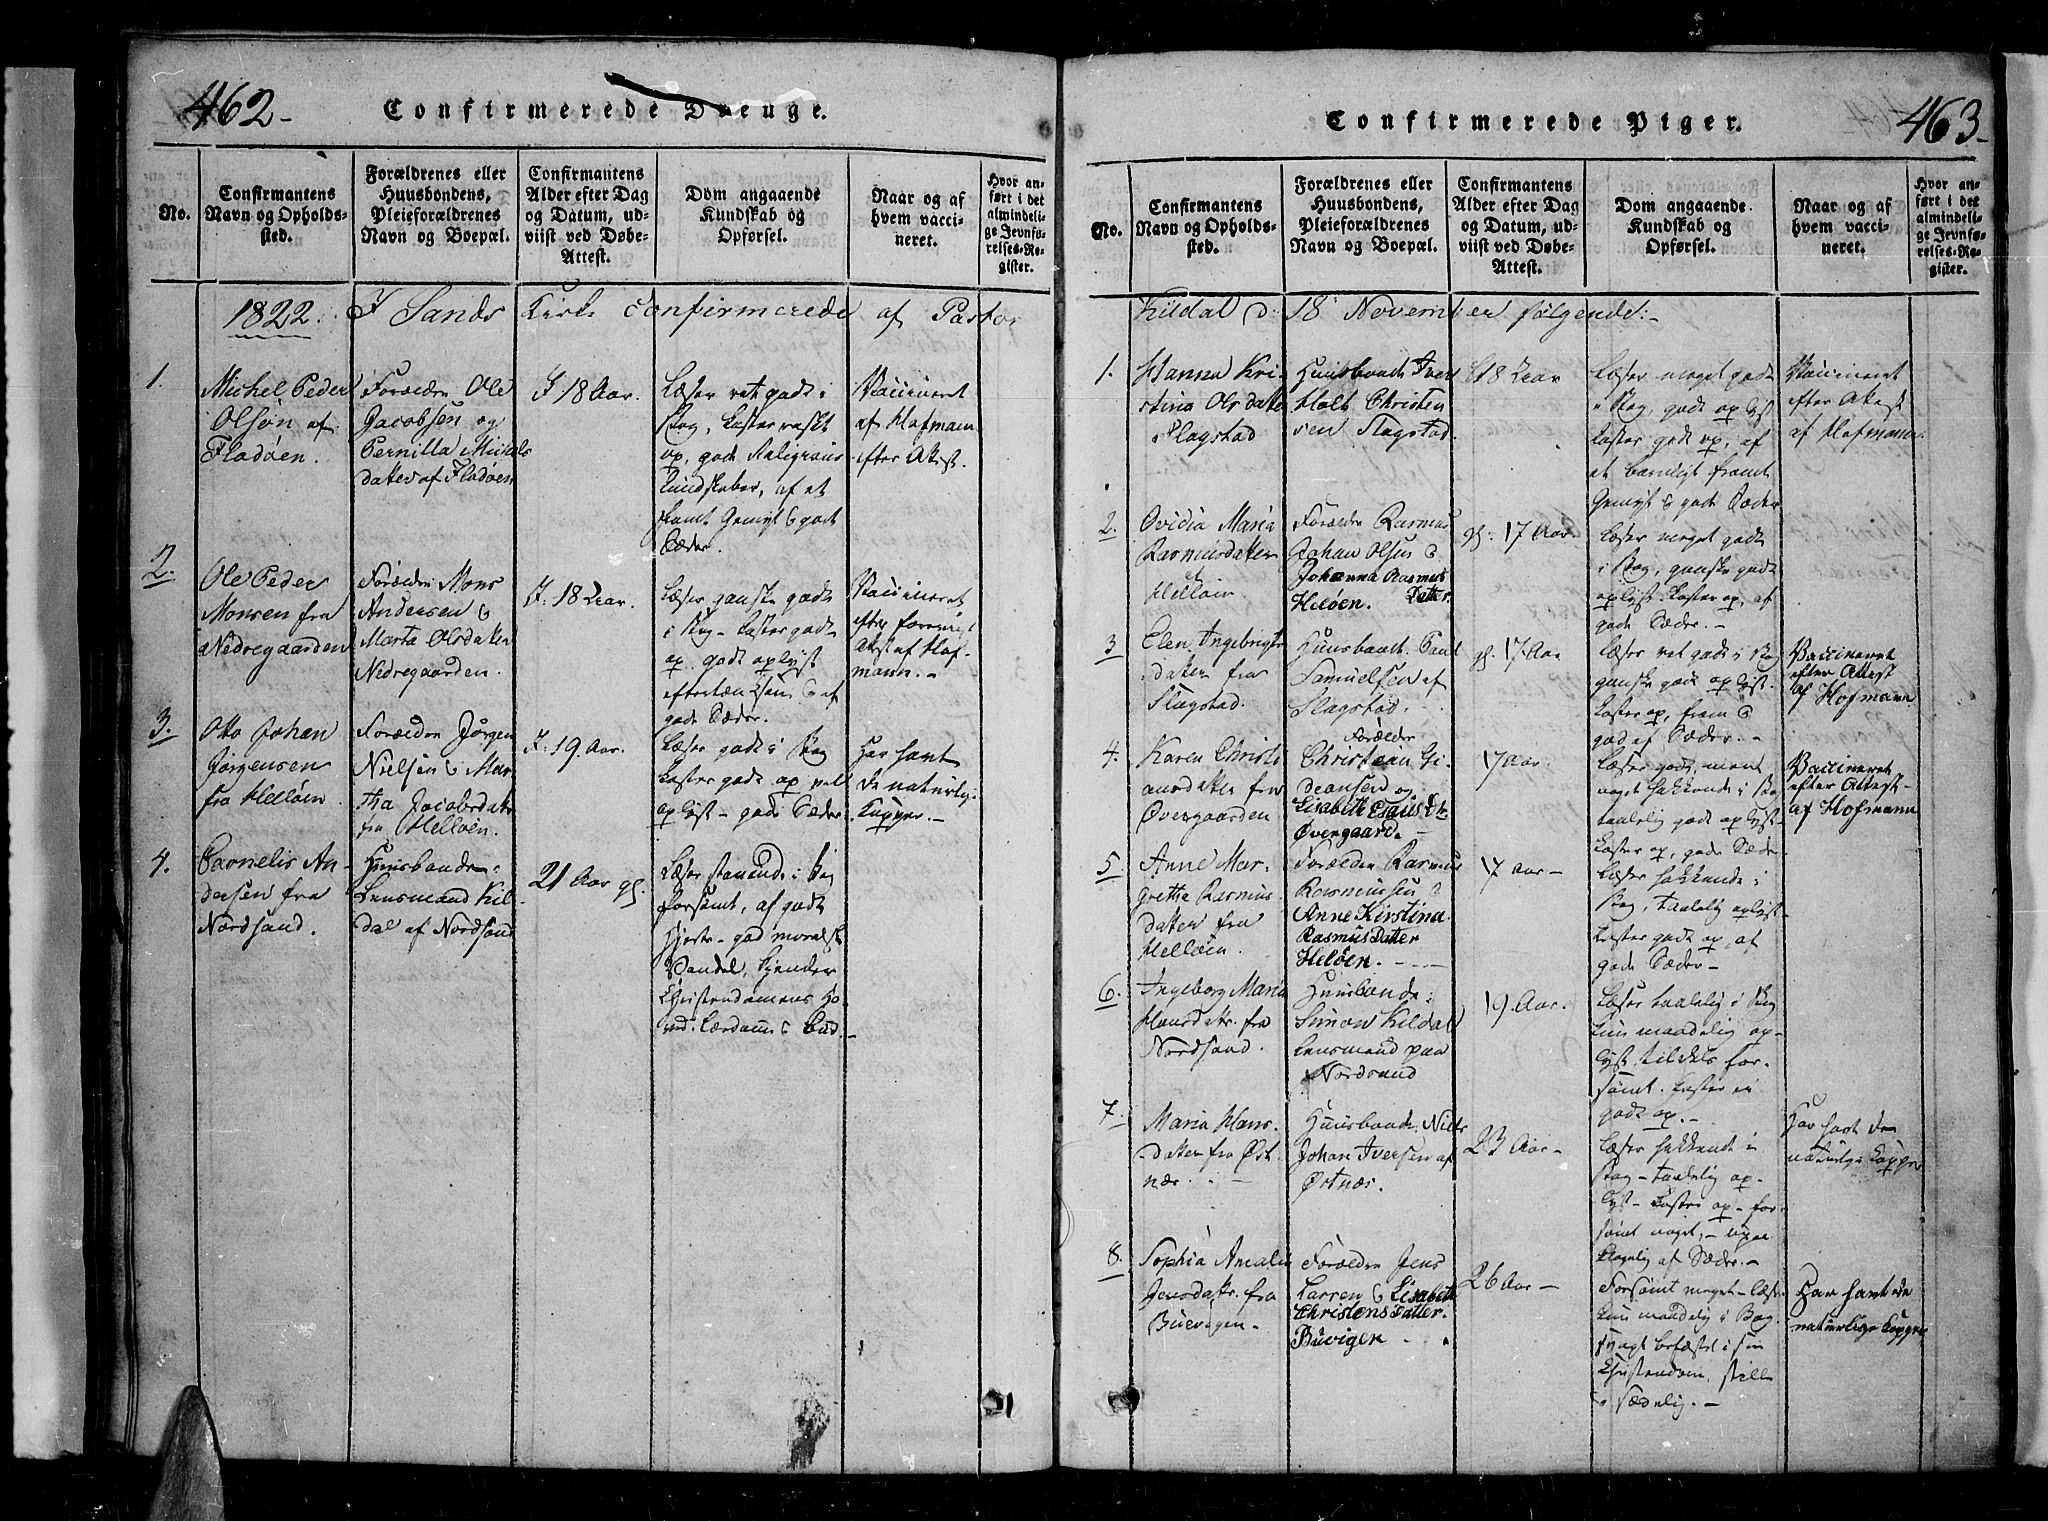 462-
Confirmerede Drenge.
No.
Confirmantens
Navn og Opholds-
sted.
Forældrenes eller
Huusbondens,
Pleieforældrenes
Navn og Boepæl.
Confirmantens
Alder efter Dag
og Datum, ud-
viist ved Døbe-
Attest.
Dom angaaende
Kundskab og
Opførsel.
Naar og af
hvem vacci-
neret.
Hvor an-
ført i det
almindeli-
ge Jevnfø-
relses-Re-
gister.
1822. I Sands Kirke confirmerede af Pastor
1.
Michel Peder
Olsøn af
Fladøen.
Forældre Ole
Jacobsen og
Pernilla Michels
datter af Fladøen
18 Aar.
Læser ret godt i
Bog, kaster raskt
op, gode Religions
kundskaber, af et
Gemyt & gode
Sæder.
Vaccineret
af Hofmann
efter Attest.
2.
Ole Peder
Monsen fra
Nedregaarden
Forældre Mons
Andersen &
Marta Olsdatter
Nedregaarden.
18 Aar.
Læser ganske godt
i Bog - kaster godt
op. godt oplyst
& af
gode Sæder.
Vaccineret
efter
Attest af Hof-
mann.-
3.
Otto Johan
Jörgensen
fra Helløen.
Forældre Jörgen
Nielsen & Mar-
tha Jacobsdatter
fra Helløen.
19. Aar.
Læser godt i Bog
kaster godt op vel
oplyst - gode Sæder
Har havt
de naturlige
Kopper.-
4.
Cornelis An-
dersen fra
Nordsand.
Huusbonde:
Lensmand Kil-
dal af Nordsand
21 Aar gl.
Læser stavende i Bog
forsömt, af godt
Hjerte - god moralsk
Vandel, kjender
Christendomens Ho-
ved-Lærdome & Bud.-
463-
Confirmerede Piger.
No.
Confirmantens
Navn og Opholds-
sted.
Forældrenes eller
Huusbondens,
Pleieforældrenes
Navn og Boepæl.
Confirmantens
Alder efter Dag
og Datum, ud-
viist ved Døbe-
Attest.
Dom angaaende
Kundskab og
Opførsel.
Naar og af
hvem vacci-
neret.
Hvor an-
ført i det
almindeli-
ge Jevnfø-
relses-Re-
gister.
Kildal d: 18 November følgende:-
1.
Hanna Kri-
stina Olsdatter
Slagstad
Huusbonde Iver
Holt Christen
sen Slagstad.
18 Aar
Læser meget godt
i Bog, godt oplyst
kaster godt op, af
et barnligt fromt
Gemyt & gode Sæder
Vaccineret
efter Attest
af Hofmann.
2.
Ovidia Maria
Rasmusdatter
af
Helløen
Forældre Rasmus
Johan Olsen &
Johanna Rasmus
Heløen. Datter.
gl: 17 Aar
Læser meget godt
i Bog, ganske godt
oplyst kaster op, af
gode Sæder.-
3
Elen Ingebrigts
datter fra
Slagstad.
Huusbonde Paul
Samuelsen af
Slagstad.
gl. 17 Aar
Læser ret godt i Bog
ganske godt oplyst.
kaster op, from &
god af Sæder.-
Vaccineret
efter Attest
af Hofmann
4.
Karen Christi
ansdatter fra
Øvergaarden
Forældre
Christian Gi-
deonsen og
Lisabeth Esaus Dtr
Øvergaarde-
17 Aar.
Læser godt, ment
noget hakkende i Bog
taalelig godt oplyst
kaster op, gode Sæder
Vaccineret
efter Attest
af Hofmann
5.
Anne Mar-
grethe Rasmus
datter fra
Helløen
Forældre Rasmus
Rasmussen &
Anne Kirstina
Rasmus Datter
Heløen.
17 Aar-
Læser hakkende i
Bog, taalelig oplyst
kaster godt op, af
gode Sæder-
6.
Ingeborg Maria
Hansdatr. fra
Nordsand.
Huusbonde:
Simon Kildal
Lensmand paa
Nordsand
19 Aar.
Læser taalelig i Bog
kun maadelig op-
lyst tildels for-
sömt. kaster ei
godt op.-
7.
Maria Hans-
datter fra Øst-
næs.
Huusbonde Niels
Johan Iversen af
Østnæs.
23 Aar-
Læser hakkende i
Bog - taalelig op-
lyst - kaster op - for-
sömt noget,-
af Sæder.-
Har havt de
naturlige Kopper
8.
Sophia Amalia
Jensdatr. fra
Buevigen-
Forældre Jens
Larsen & Lisabeth
Christens Datter.
Büvigen
26 Aar-
Forsömt meget - læser
kun maadelig i Bog
svagt befæstet i sin
Christendom, stille
& sædelig.-
Har havt de
naturlige Kopper